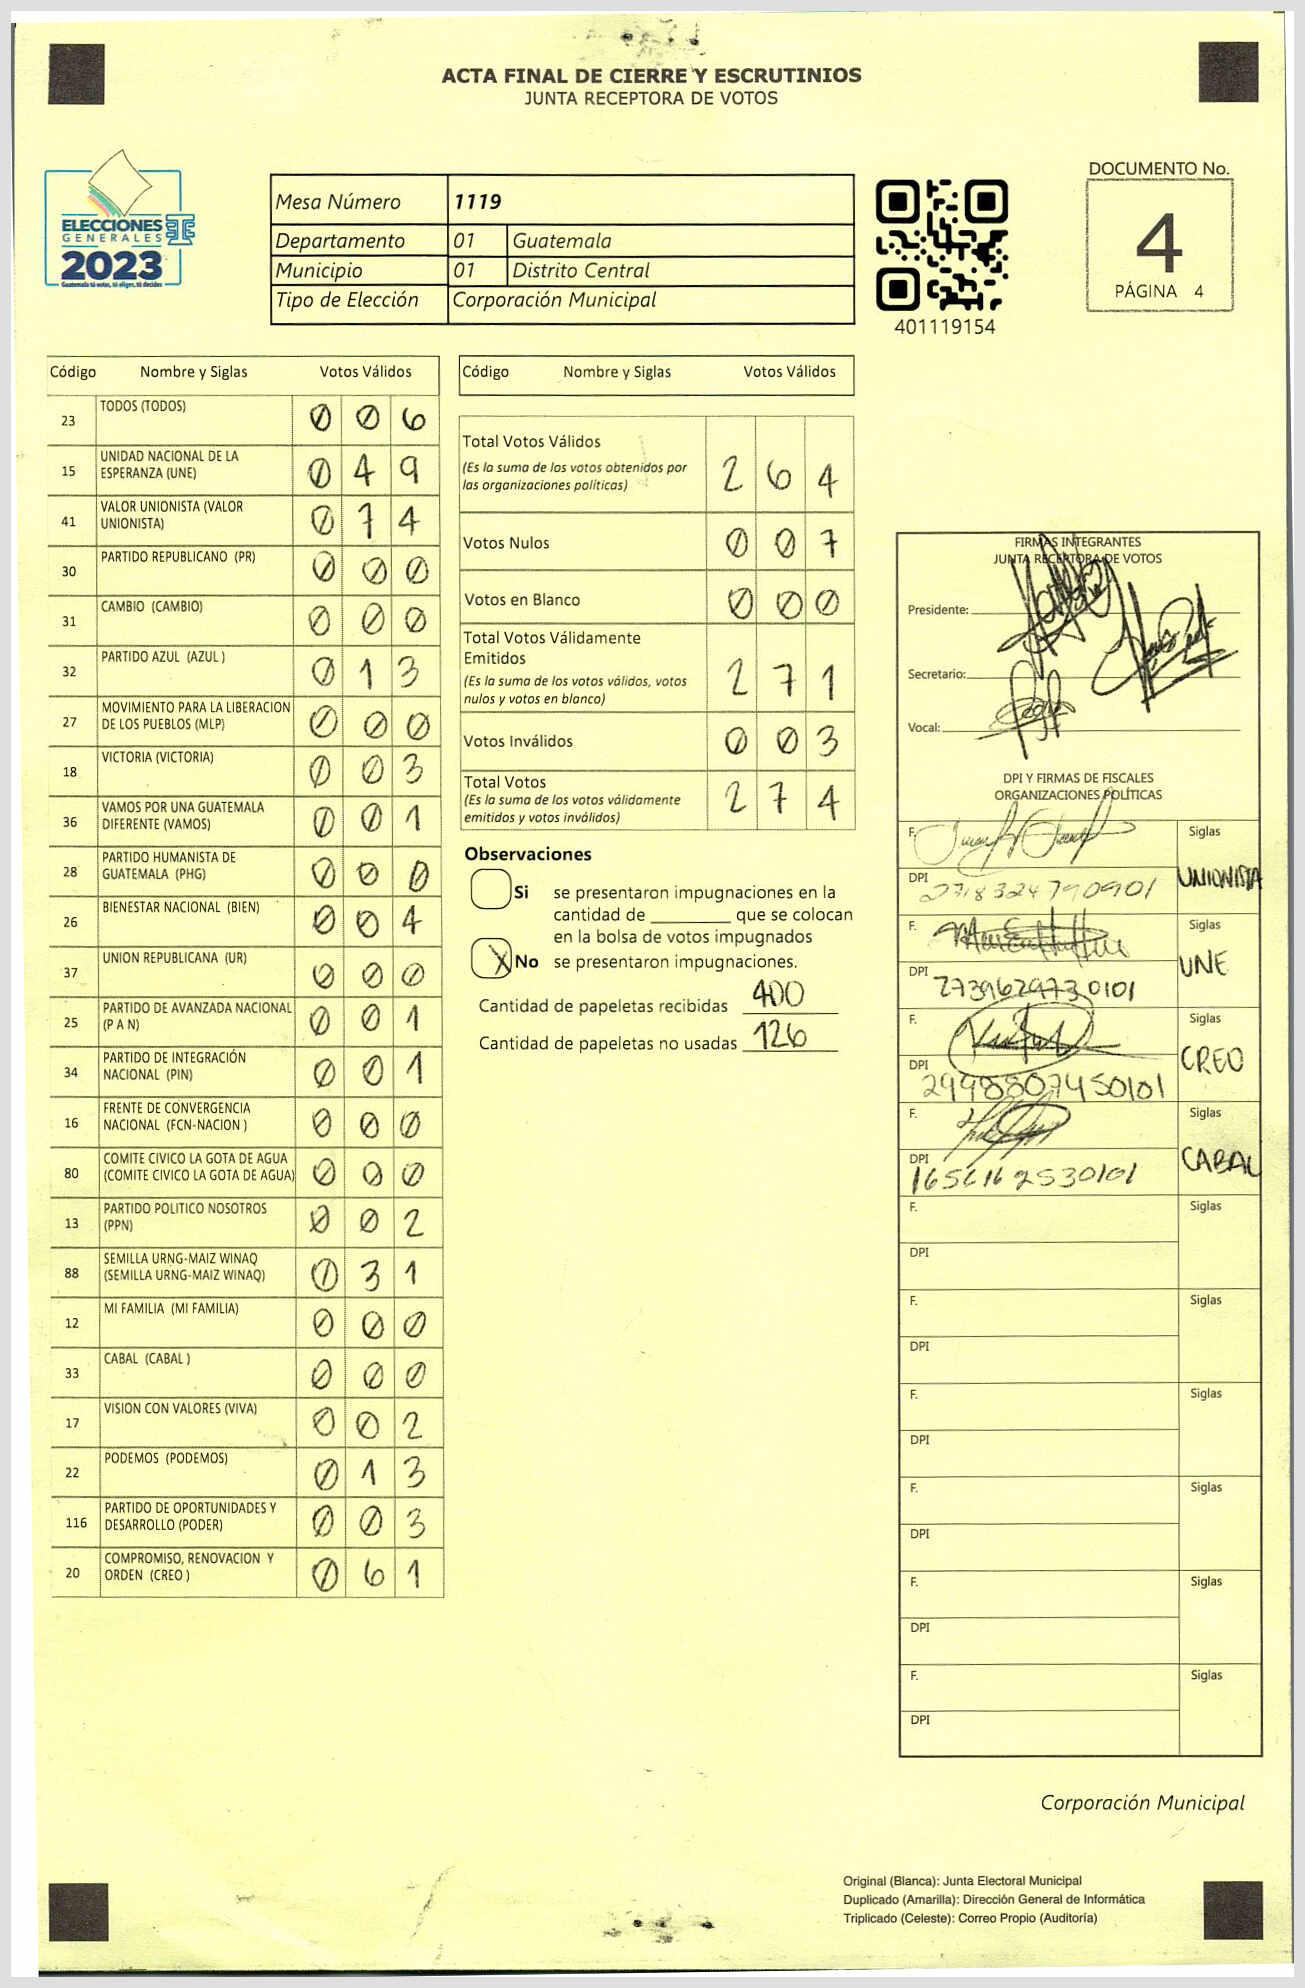 ACTA FINAL DE CIERRE Y ESCRUTINIOS
JUNTA RECEPTORA DE VOTOS
ELECCIONES
GENERALES
2023
Guatemala tú votas, tú eliges, tú decides
Mesa Número 1119
Departamento 01 Guatemala
Municipio 01 Distrito Central
Tipo de Elección Corporación Municipal
401119154
DOCUMENTO No.
4
PÁGINA 4
Código Nombre y Siglas Votos Válidos
23 TODOS (TODOS) 0 0 6
15 UNIDAD NACIONAL DE LA ESPERANZA (UNE) 0 4 9
41 VALOR UNIONISTA (VALOR UNIONISTA) 0 7 4
30 PARTIDO REPUBLICANO (PR) 0 0 0
31 CAMBIO (CAMBIO) 0 0 0
32 PARTIDO AZUL (AZUL ) 0 1 3
27 MOVIMIENTO PARA LA LIBERACION DE LOS PUEBLOS (MLP) 0 0 0
18 VICTORIA (VICTORIA) 0 0 3
36 VAMOS POR UNA GUATEMALA DIFERENTE (VAMOS) 0 0 1
28 PARTIDO HUMANISTA DE GUATEMALA (PHG) 0 0 0
26 BIENESTAR NACIONAL (BIEN) 0 0 4
37 UNION REPUBLICANA (UR) 0 0 0
25 PARTIDO DE AVANZADA NACIONAL (P A N) 0 0 1
34 PARTIDO DE INTEGRACIÓN NACIONAL (PIN) 0 0 1
16 FRENTE DE CONVERGENCIA NACIONAL (FCN-NACION ) 0 0 0
80 COMITE CIVICO LA GOTA DE AGUA (COMITE CIVICO LA GOTA DE AGUA) 0 0 0
13 PARTIDO POLITICO NOSOTROS (PPN) 0 0 2
88 SEMILLA URNG-MAIZ WINAQ (SEMILLA URNG-MAIZ WINAQ) 0 3 1
12 MI FAMILIA (MI FAMILIA) 0 0 0
33 CABAL (CABAL ) 0 0 0
17 VISION CON VALORES (VIVA) 0 0 2
22 PODEMOS (PODEMOS) 0 1 3
116 PARTIDO DE OPORTUNIDADES Y DESARROLLO (PODER) 0 0 3
20 COMPROMISO, RENOVACION Y ORDEN (CREO ) 0 6 1
Código Nombre y Siglas Votos Válidos
Total Votos Válidos
(Es la suma de los votos obtenidos por
las organizaciones políticas) 2 6 4
Votos Nulos 0 0 7
Votos en Blanco 0 0 0
Total Votos Válidamente
Emitidos
(Es la suma de los votos válidos, votos
nulos y votos en blanco) 2 7 1
Votos Inválidos 0 0 3
Total Votos
(Es la suma de los votos válidamente
emitidos y votos inválidos) 2 7 4
Observaciones
Si se presentaron impugnaciones en la
cantidad de ________ que se colocan
en la bolsa de votos impugnados
X No se presentaron impugnaciones.
Cantidad de papeletas recibidas 400
Cantidad de papeletas no usadas 126
FIRMAS INTEGRANTES
JUNTA RECEPTORA DE VOTOS
Presidente:
Secretario:
Vocal:
DPI Y FIRMAS DE FISCALES
ORGANIZACIONES POLÍTICAS
F. Siglas
DPI 2318324790901 UNIONISTA
F. Siglas
DPI 2739629730101 UNE
F. Siglas
DPI 2998807450101 CREO
F. Siglas
DPI CABAL
F. Siglas
DPI
F. Siglas
DPI
F. Siglas
DPI
F. Siglas
DPI
F. Siglas
DPI
F. Siglas
DPI
Corporación Municipal
Original (Blanca): Junta Electoral Municipal
Duplicado (Amarilla): Dirección General de Informática
Triplicado (Celeste): Correo Propio (Auditoría)